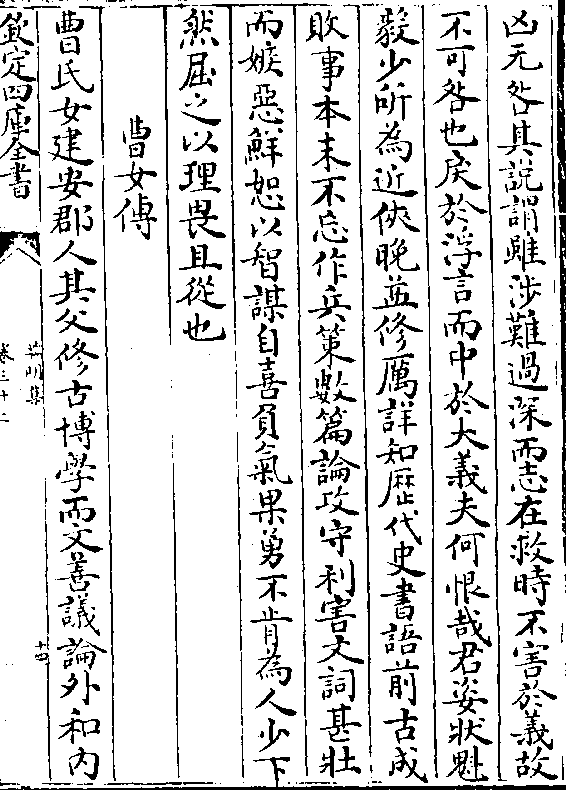 凶无咎其説謂雖涉難過深而志在救時不害於義故
不可咎也戾於浮言而中於大義夫何恨哉君姿狀魁
毅少所為近俠晚益修厲詳知歴代史書語前古成
敗事本末不忘作兵策數篇論攻守利害文詞甚壯
而嫉惡鮮恕以智謀自喜負氣果勇不肯為人少下
然屈之以理畏且從也
曹女傳
曹氏女建安郡人其父修古博學而文善議論外和内
欽定四庫全書
莆明集
卷三十二
十四